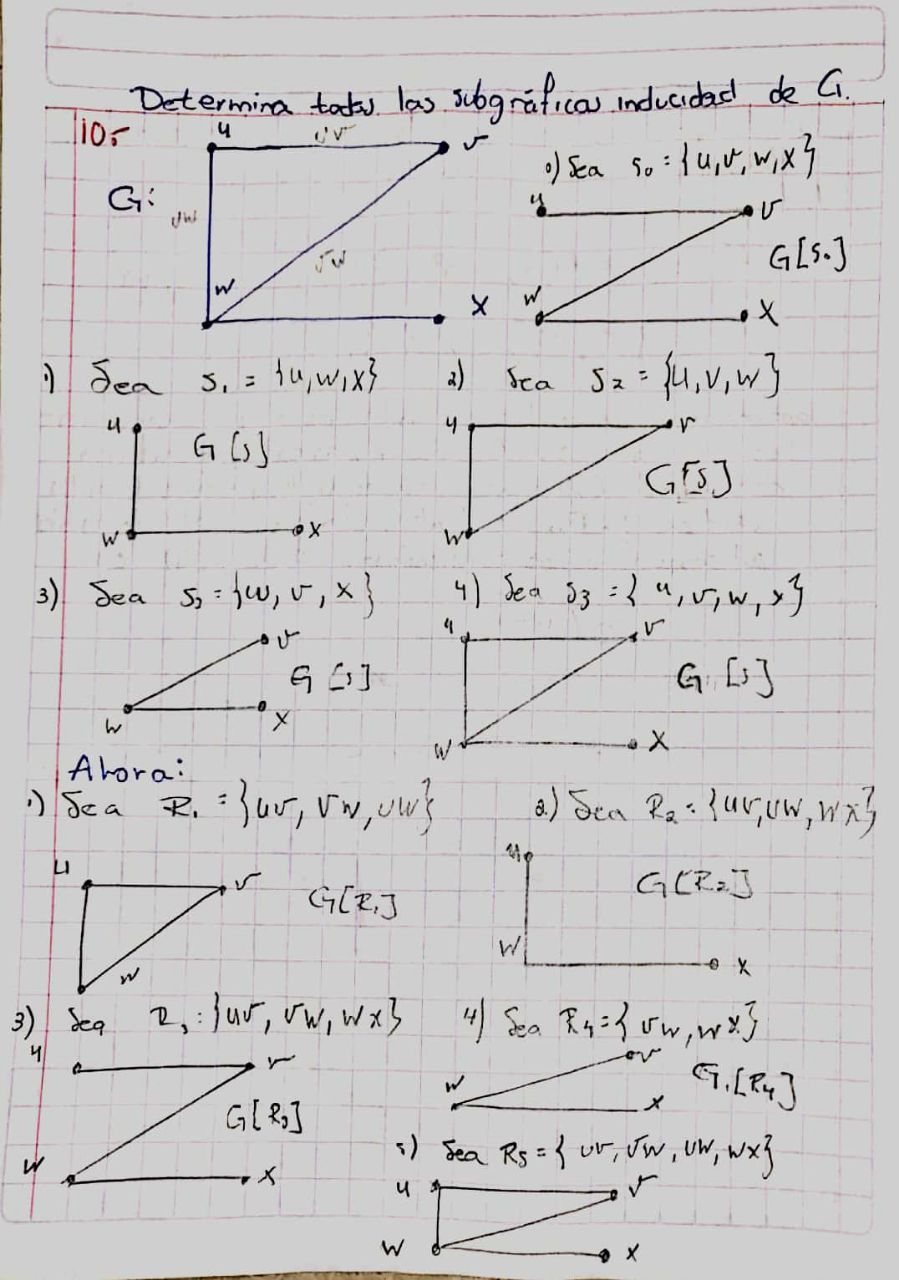 Determina todas las subgráficas inducidad de G.
10.-
u uv v
G: uw vw
w x
0) Sea S0 = {u, v, w, x}
u v
G[S0]
w x
1) Sea S1 = {u, w, x}
u G[S]
w x
2) Sea S2 = {u, v, w}
u v
G[S]
w
3) Sea S3 = {w, v, x}
v
G[S]
w x
4) Sea S3 = { u, v, w, x}
u v
G[S]
w x
Ahora:
1) Sea R1 = {uv, vw, uw}
u v
G[R1]
w
2) Sea R2 = {uv, uw, wx}
u
G[R2]
w x
3) Sea R3: {uv, vw, wx}
u v
G[R3]
w x
4) Sea R4 = { vw, wx}
v
w G.[R4]
x
5) Sea R5 = { uv, vw, uw, wx}
u v
w x